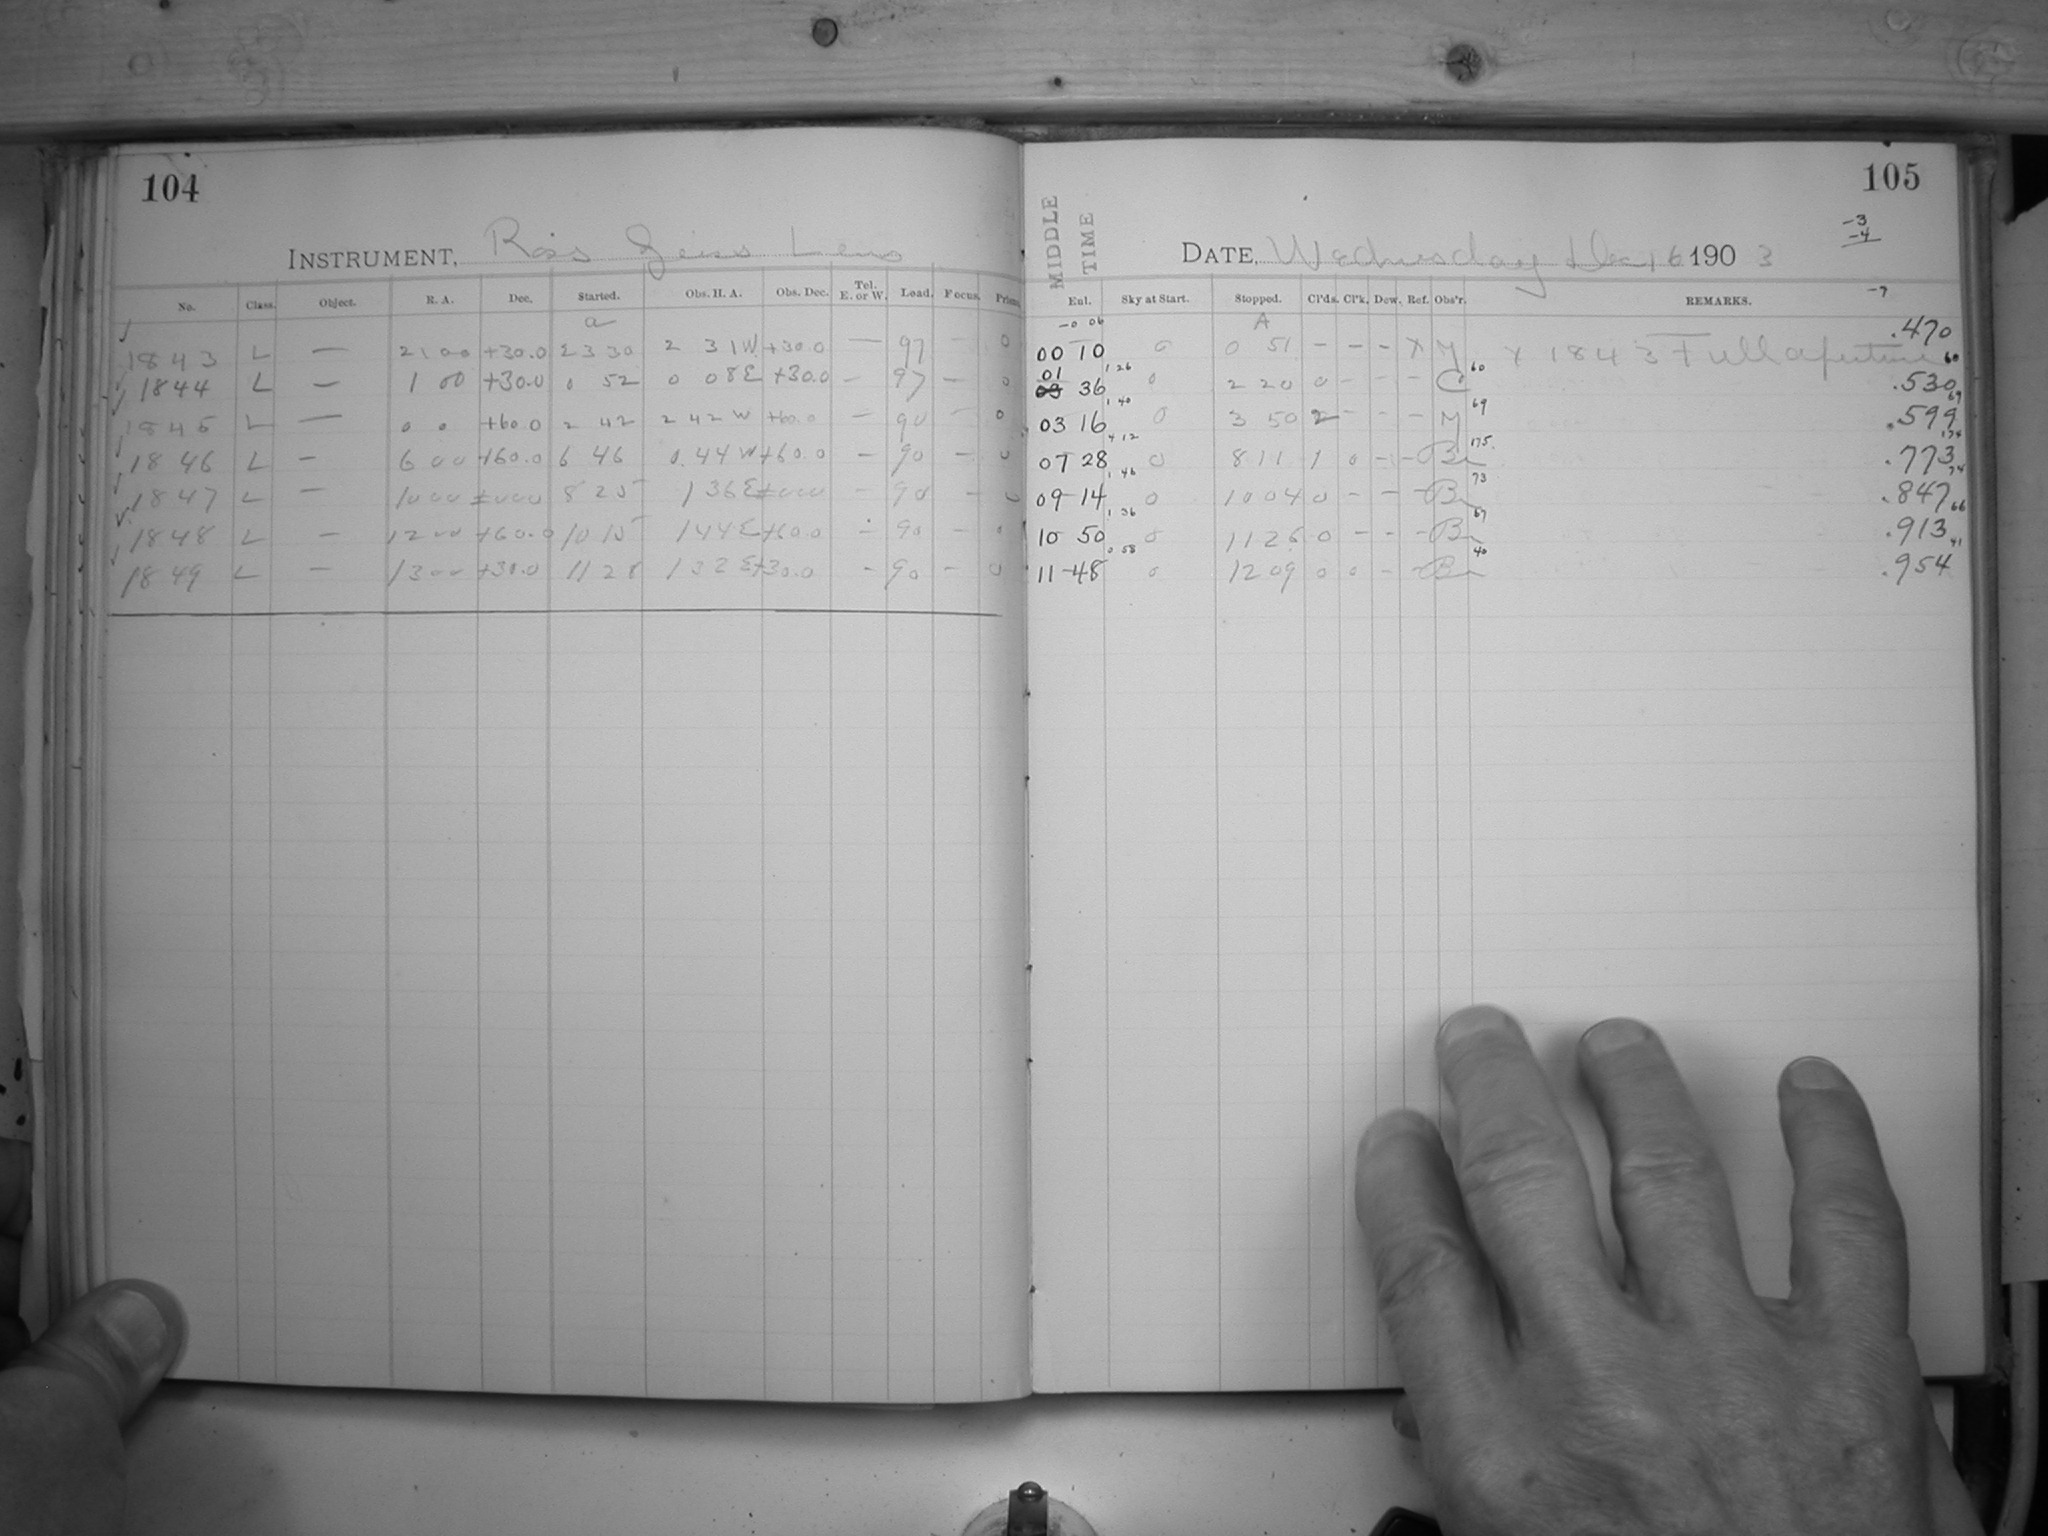 104
INSTRUMENT, Ross Zeiss Lens
No. Class. Object. R. A. Dec. Started. Obs. H. A. Obs. Dec. Tel. E. or W. Load. Focus. Prism.
a
1843 L — 21 00 +30.0 23 30 2 31 W +30.0 — 97 — 0
1844 L — 1 00 +30.0 0 52 0 08 E +30.0 — 97 — 0
1845 L — 0 0 +60.0 2 42 2 42 W +60.0 — 90 — 0
1846 L — 6 00 +60.0 6 46 0 44 W +60.0 — 90 — 0
1847 L — 10 00 ±000 8 25 1 36 E ±000 — 90 — 0
1848 L — 12 00 +60.0 10 15 1 44 E +60.0 — 90 — 0
1849 L — 13 00 +30.0 11 28 1 32 E +30.0 — 90 — 0
105
MIDDLE TIME
-3
-4
-7
DATE, Wednesday Dec 16 1903
Eul. Sky at Start. Stopped. Cl'ds. Cl'k. Dew. Ref. Obs'r. REMARKS.
-0 06 A
00 10 0 0 51 – – – X M X 1843 Full aperture .470
1 26 60 60
01 36 0 2 20 0 – – – C .530
1 40 69 69
03 16 0 3 50 2 – – – M .599
4 12 175 174
07 28 0 8 11 1 0 – – Br .773
1 46 73 74
09 14 0 10 04 0 – – – Br .847
1 36 67 66
10 50 0 11 26 0 – – – Br .913
0 58 40 41
11 48 0 12 09 0 0 – – Br .954